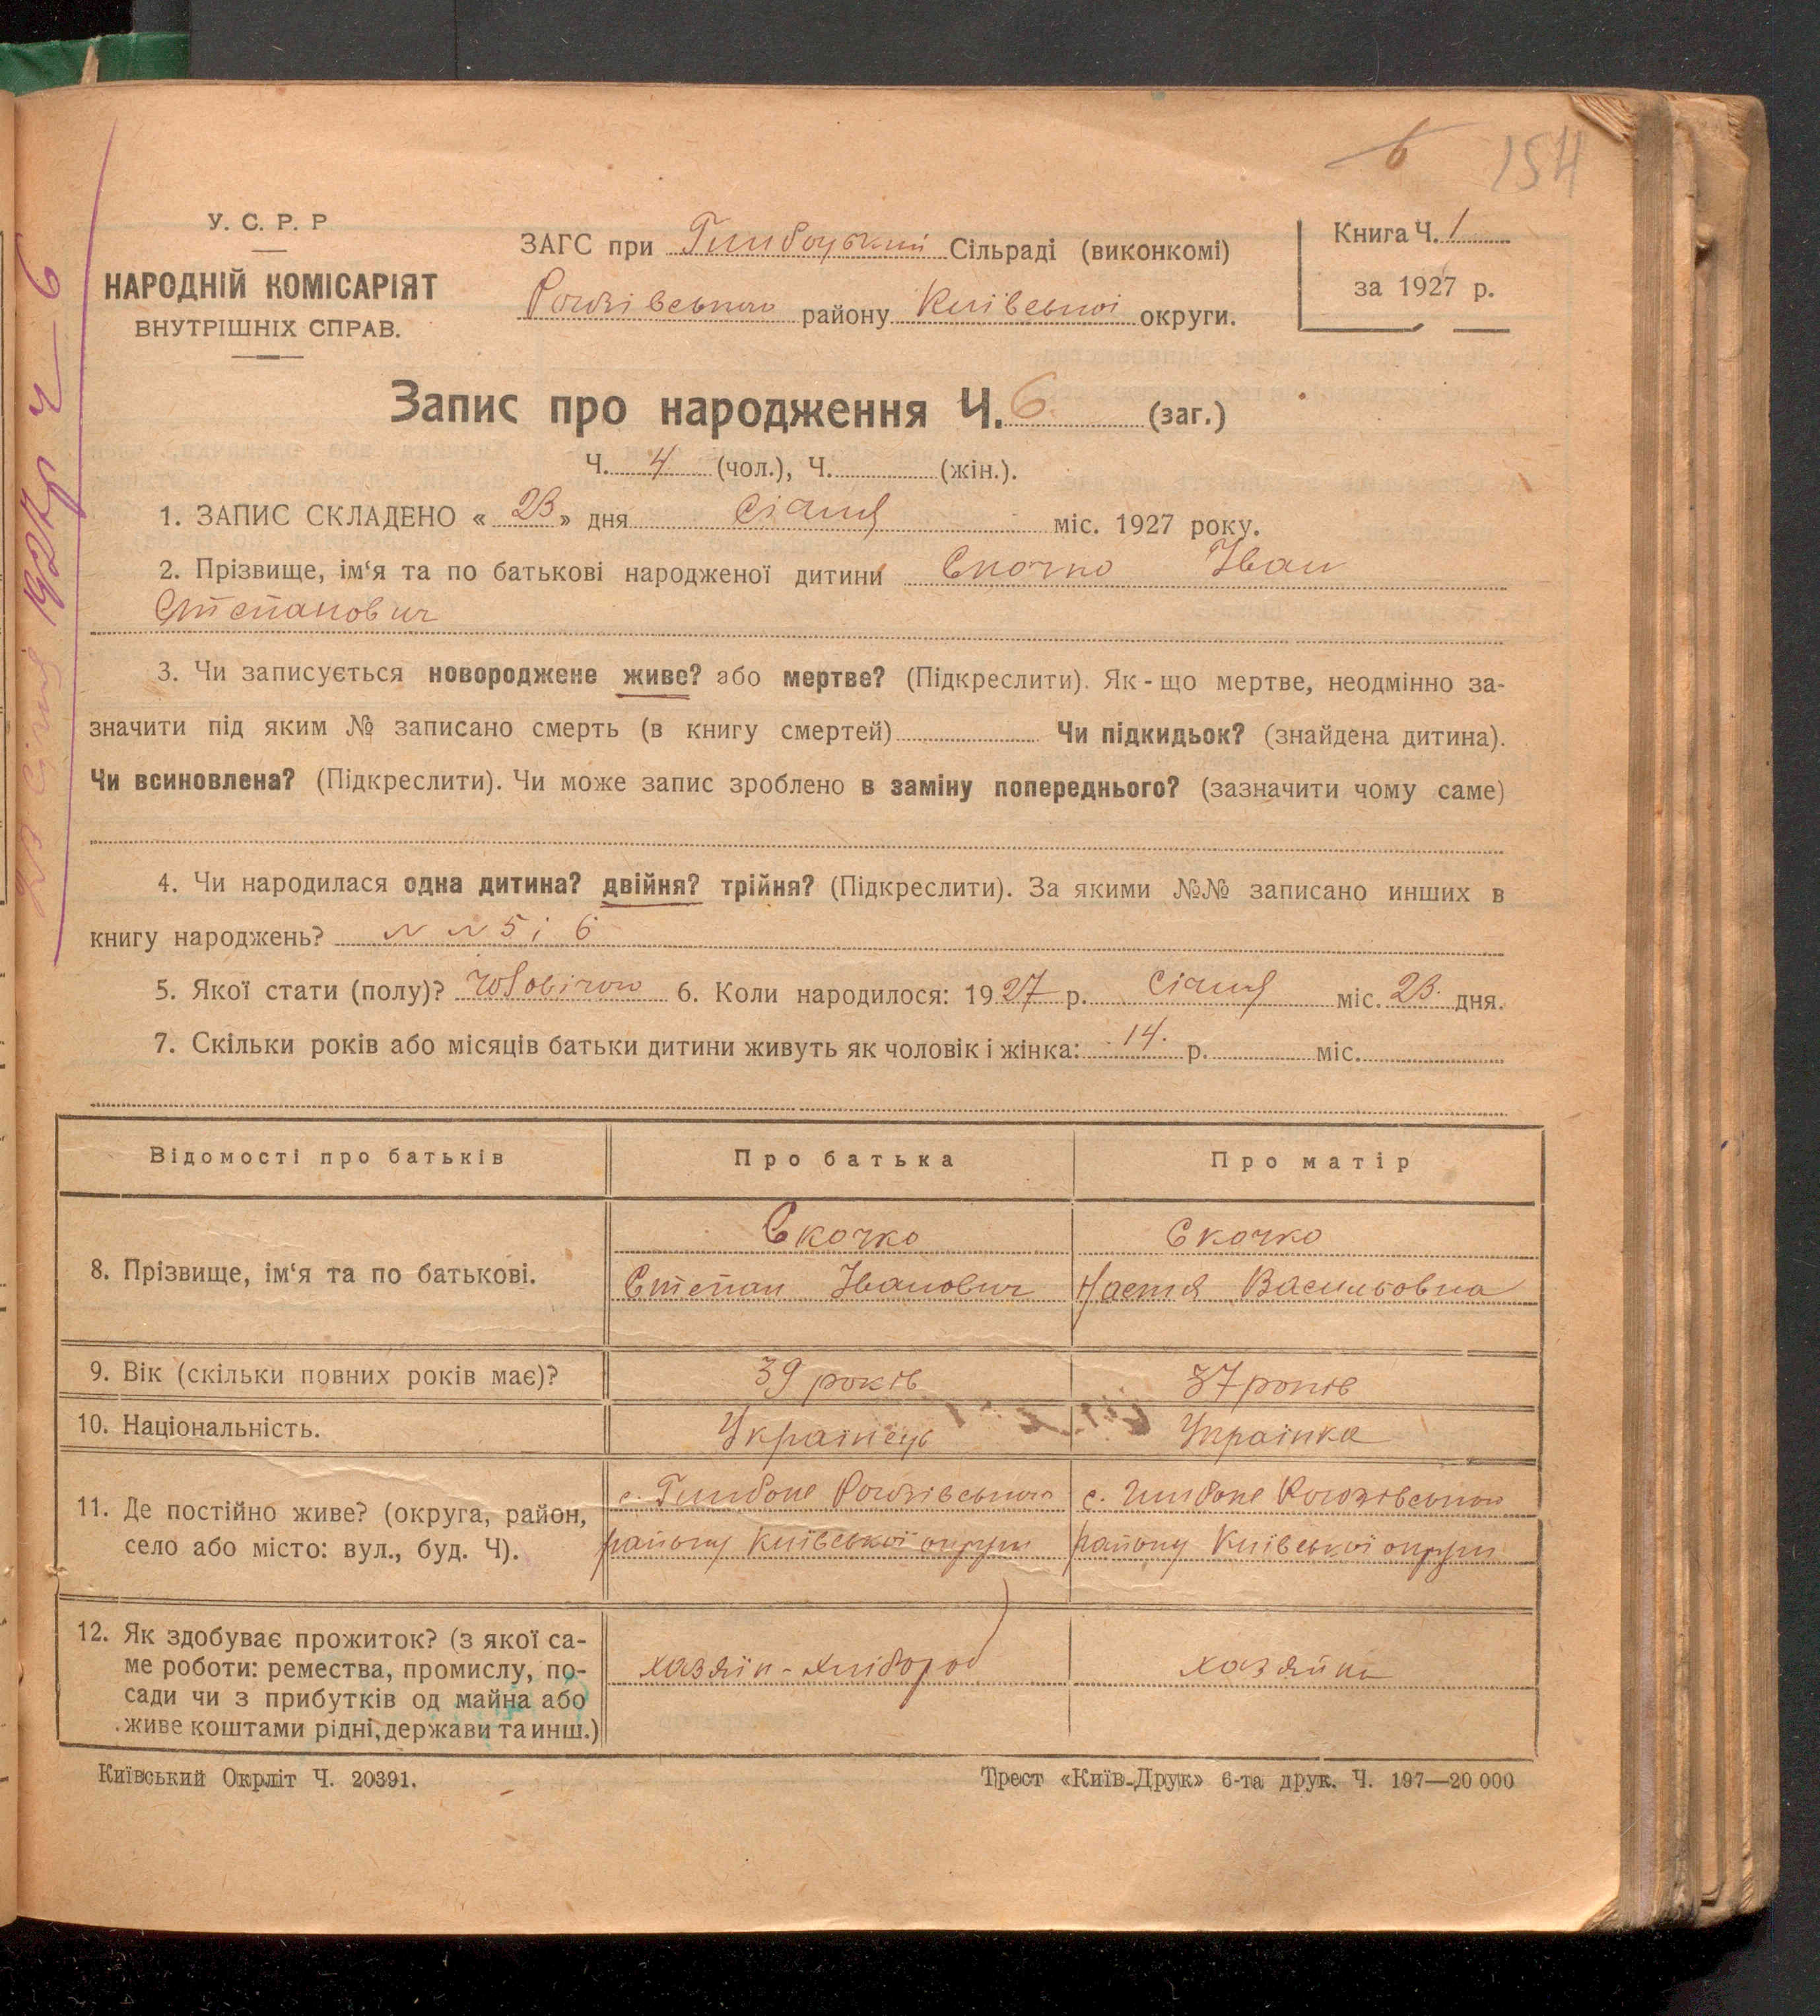 6 154
У. С. Р. Р
НАРОДНІЙ КОМІСАРІЯТ
ВНУТРІШНІХ СПРАВ.
ЗАГС при Глибоцький Сільраді (виконкомі)
Рогозівського району Київської округи.
Книга Ч. 1
за 1927 р.
Запис про народження Ч. 6 (заг.)
Ч. 4 (чол.), Ч. (жін.).
1. ЗАПИС СКЛАДЕНО « 23 » дня Січня міс. 1927 року.
2. Прізвище, ім‘я та по батькові народженої дитини Скочко Іван
Степанович
3. Чи записується новороджене живе? або мертве? (Підкреслити). Як-що мертве, неодмінно за-
значити під яким № записано смерть (в книгу смертей) Чи підкидьок? (знайдена дитина).
Чи всиновлена? (Підкреслити). Чи може запис зроблено в заміну попереднього? (зазначити чому саме)
4. Чи народилася одна дитина? двійня? трійня? (Підкреслити). За якими №№ записано инших в
книгу народжень? N N 5 і 6
5. Якої стати (полу)? чоловічою 6. Коли народилося: 1927 р. Січня міс. 23. дня.
7. Скільки років або місяців батьки дитини живуть як чоловік і жінка: 14. р. міс.
Відомості про батьків Про батька Про матір
8. Прізвище, ім‘я та по батькові.
Скочко Скочко
Степан Іванович Настя Васильовна
9. Вік (скільки повних років має)? 39 років 37 років
10. Національність. Українець Українка
11. Де постійно живе? (округа, район,
село або місто: вул., буд. Ч).
с. Глибоке Рогозівського с. Глибоке Рогозівського
району Київської округи району Київської округи
12. Як здобуває прожиток? (з якої са-
ме роботи: ремества, промислу, по-
сади чи з прибутків од майна або
живе коштами рідні, держави та инш.)
хазяїн-хлібороб хазяйка
Київський Окрліт Ч. 20391.
Трест «Київ-Друк» 6-та друк. Ч. 197—20 000
23 Січня 1927 р Ч—6